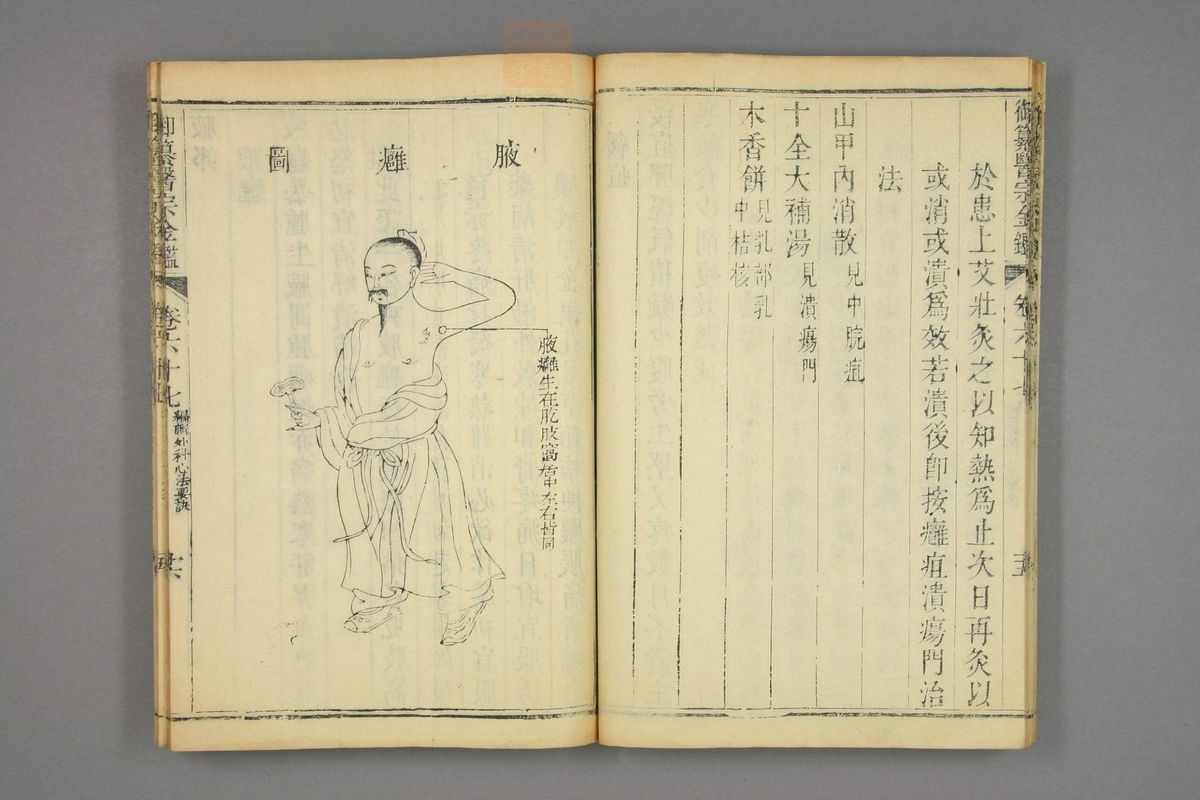 御纂醫宗金鑑
卷六十七
於患上艾壯灸之以知熱爲止次日再灸以
或消或潰爲效若潰後卽按癰疽潰瘍門治
法
山甲內消散見中脘疽
十全大補湯見潰瘍門
木香餅見乳部乳
中桔核
腋癰圖
腋癰生在肐肢窩當中左右皆同
御纂醫宗金鑑
卷六十七
編輯外科心法要訣